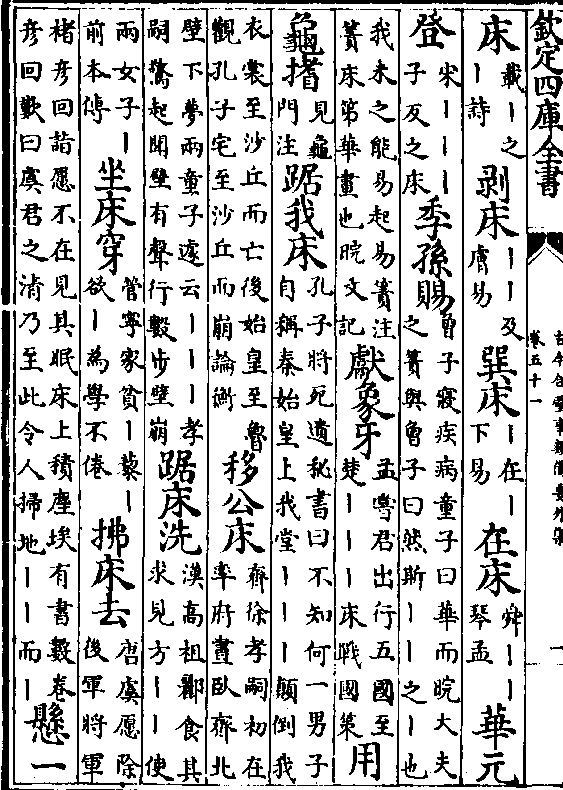 欽定四庫全書
古今合璧事類備要外集
卷五十一
一
床載丨之丨詩 剥床丨丨及膚易 巽床丨在丨下易 在床舜丨丨琴孟 華元
登宋丨丨丨子反之床 季孫賜曾子寢疾病童子曰華而睆大夫之簀與曾子曰然斯丨丨之丨也
我未之能易起易簀注簀床第華畫也睆文記 獻象牙孟嘗君出行五國至楚丨丨丨床戰國策 用
龜搘見龜門注 踞我床孔子將死遺秘書曰不知何一男子自稱秦始皇上我堂丨丨丨顛倒我
衣裳至沙丘而亡後始皇至魯觀孔子宅至沙丘而崩論衡 移公床齊徐孝嗣初在率府晝卧齊北
壁下夢兩童子遽云丨丨丨丨孝嗣驚起聞壁有聲行數步壁崩 踞床洗漢高祖酈食其求見方丨丨使
兩女子丨前本傳 坐床穿管寧家貧丨藜丨欲丨為學不倦 拂床去唐虞愿除後軍將軍
褚彦回詣愿不在見其眠床上積塵埃有書數卷彦回歎曰虞君之清乃至此令人掃地丨丨而丨 懸一